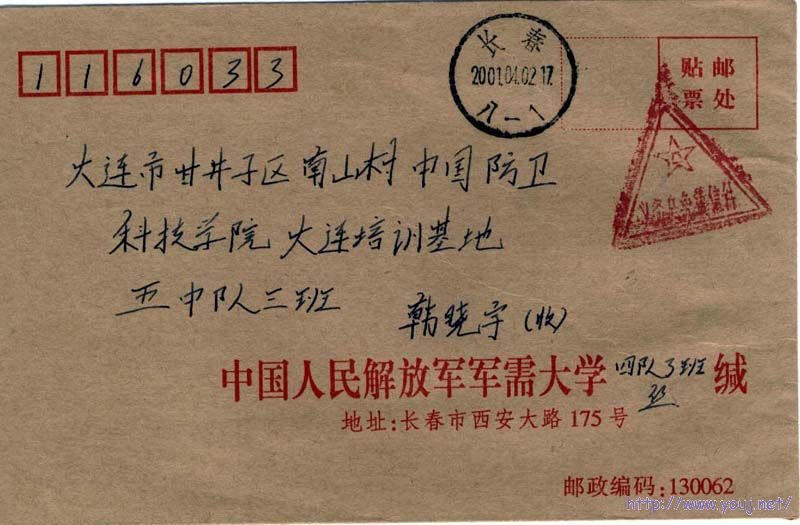 116033
长春
2001.04.02.17
八一1
贴邮
票处
义务兵免费信件
大连市甘井子区南山村中国防卫
科技学院 大连培训基地
五中队三班 韩晓宇(收)
中国人民解放军军需大学 四队3班 缄
地址:长春市西安大路175号
邮政编码:130062
http://www.youj.net/